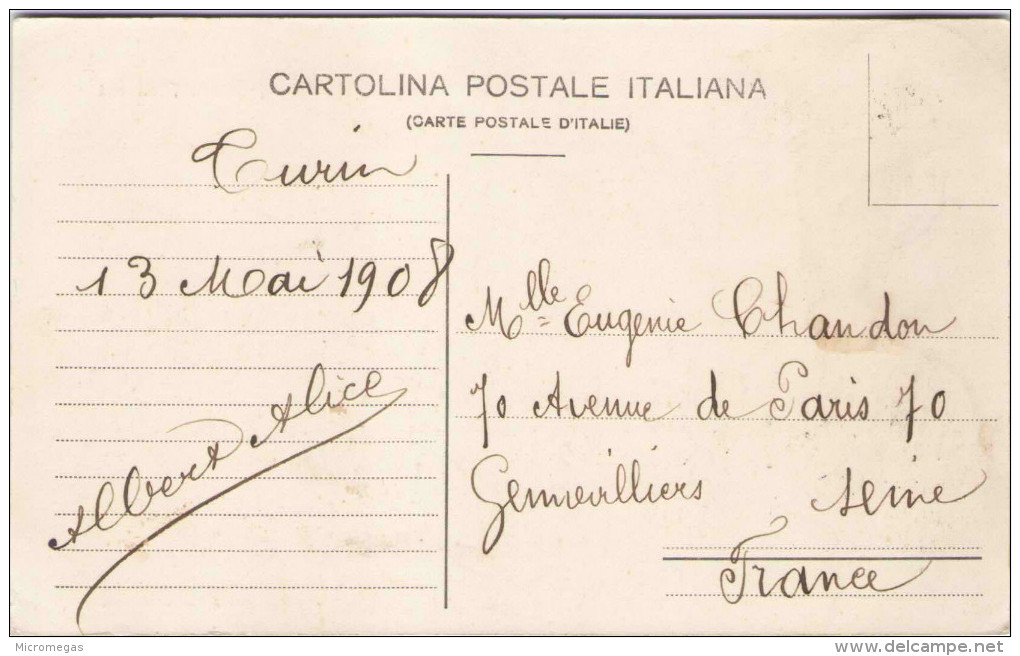 CARTOLINA POSTALE ITALIANA
(CARTE POSTALE D'ITALIE)
Turin
13 Mai 1908
Albert Alice
Mlle Eugenie Chandon
70 Avenue de Paris 70
Gennevilliers Seine
France
Micromegas
www.delcampe.net